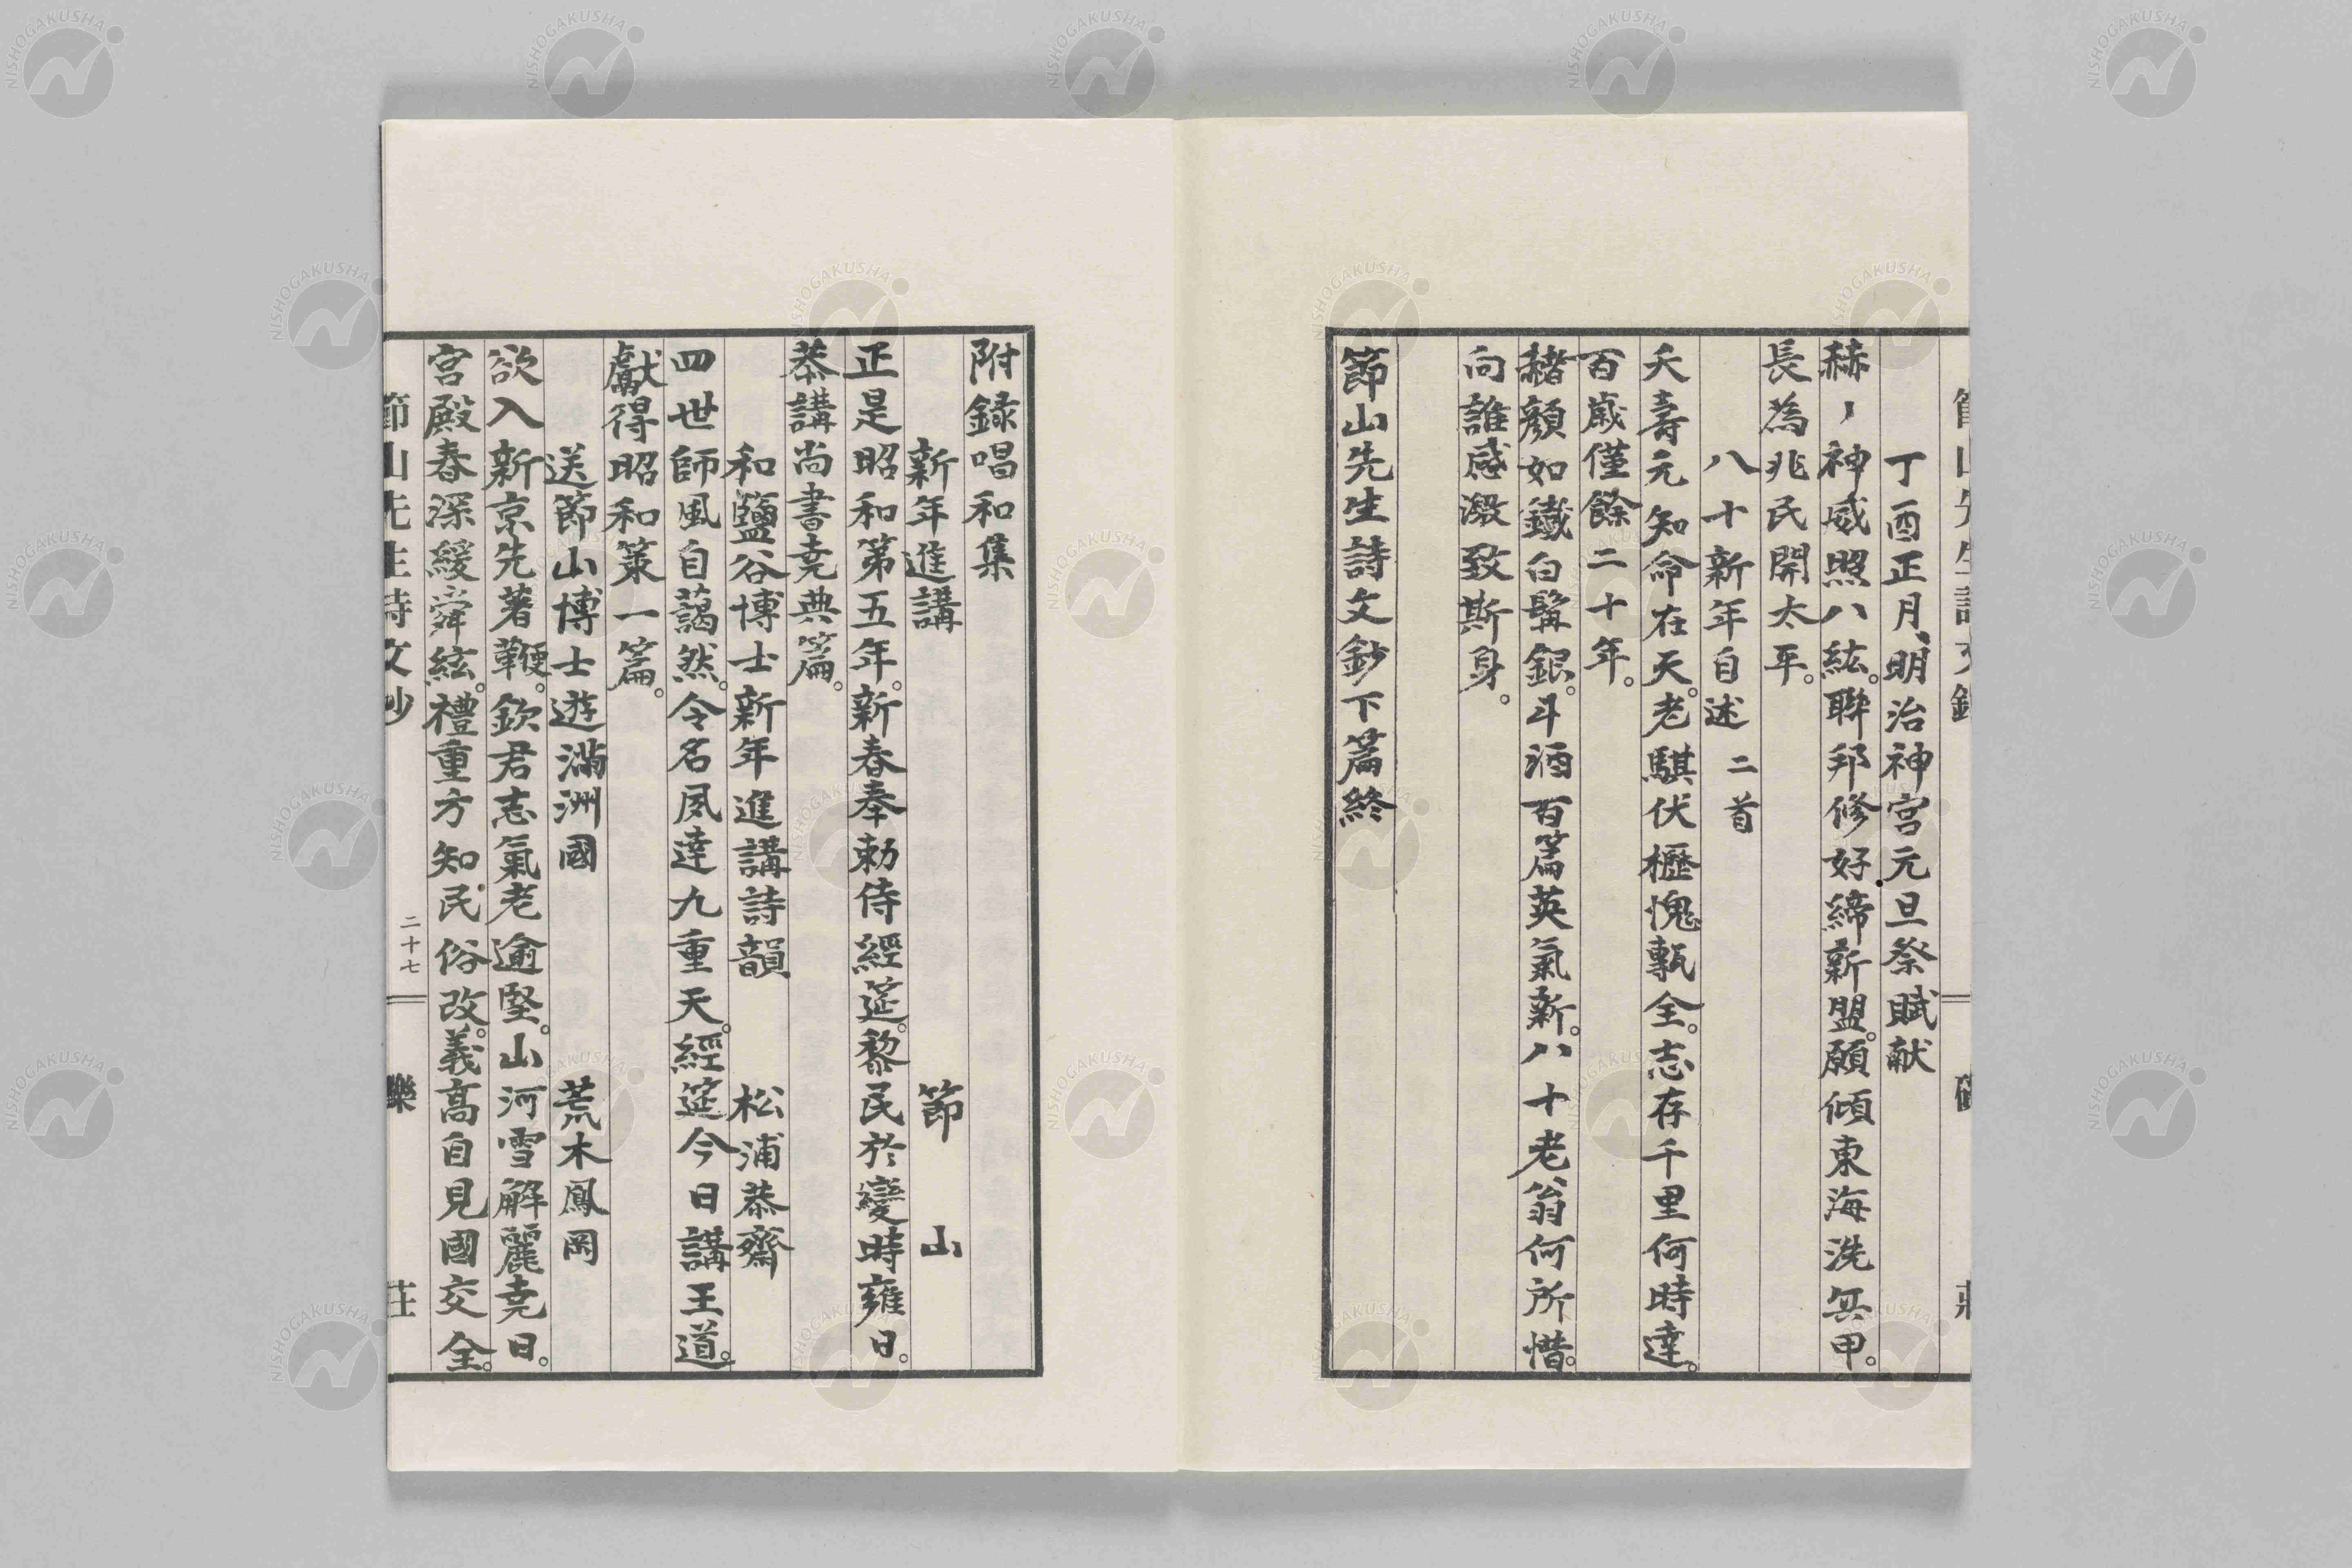 丁酉正月、明治神宮元旦祭賦献
赫々神威照八紘。聯邦修好締新盟。願傾東海洗兵甲。
長為兆民開太平。
八十新年自述 二首
夭壽元知命在天。老騏伏櫪愧甎全。志存千里何時達。
百歳僅餘二十年。
赭顔如鐵白髯銀。斗酒百篇英氣新。八十老翁何所惜。
向誰感激致斯身。
節山先生詩文鈔下篇終
附録唱和集
新年進講 節山
正是昭和第五年。新春奉勅侍經筵。黎民於變時雍日。
恭講尚書堯典篇。
和鹽谷博士新年進講詩韻 松浦恭齋
四世師風自藹然。令名夙達九重天。經筵今日講王道。
獻得昭和策一篇。
送節山博士遊滿洲國 荒木鳳岡
欲入新京先著鞭。欽君志氣老逾堅。山河雪解麗堯日。
宮殿春深緩舜絃。禮重方知民俗改。義高自見國交全。
節山先生詩文鈔 二十七
NISHOGAKUSHA